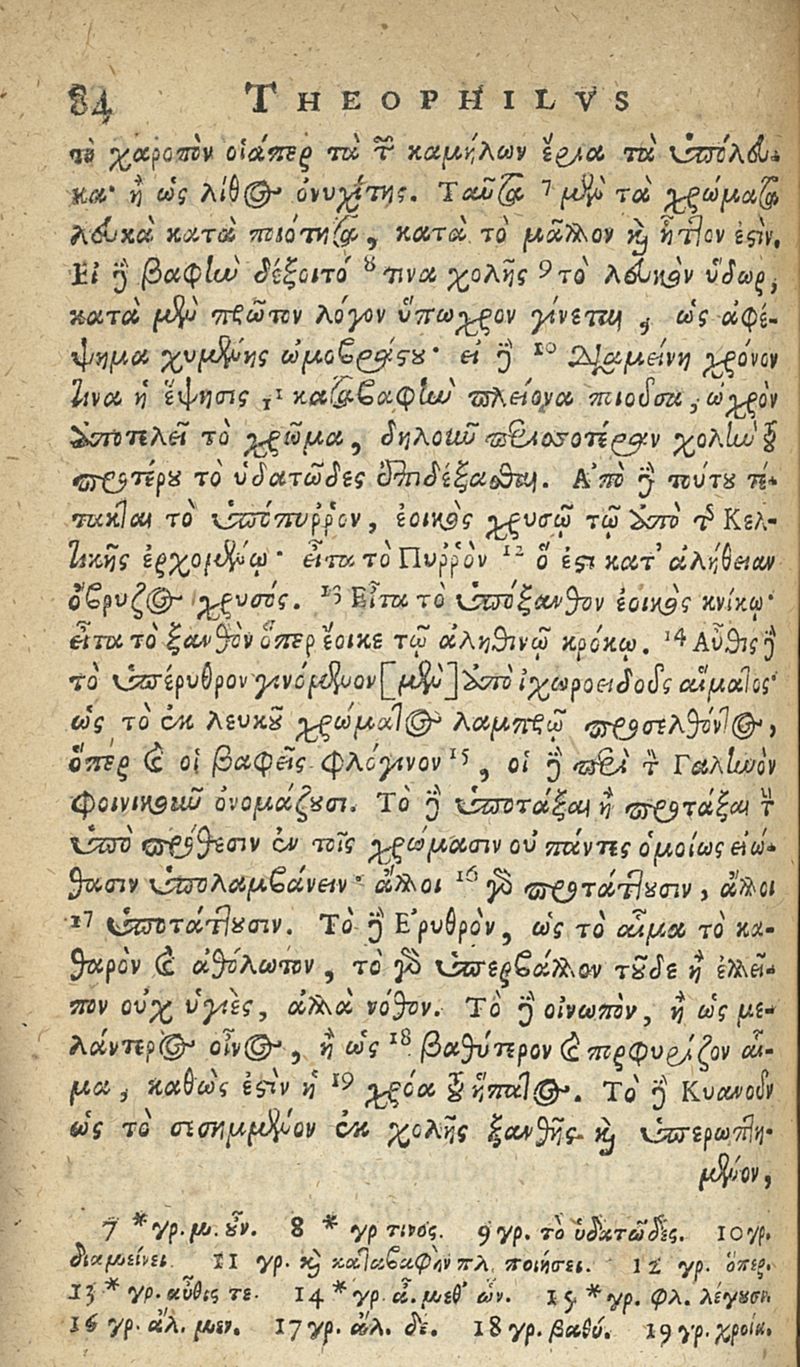 84 THEOPHILVS
τὸ χαροπὸν οἱάπερ τὰ τ καμήλων ἔρια τὰ ὑπόλευ-
κα· ἢ ὡς λίθος ὀνυχίτης. Ταῦτα 7 μὲν τὰ χρώματα
λευκὰ κατὰ πιότητα, κατὰ τὸ μᾶλλον καὶ ἧττον ἐστιν.
Εἰ δὲ βαφὴν δέξοιτό 8 τινα χολῆς 9 τὸ λευκὸν ὕδωρ,
κατὰ μὲν πρῶτον λόγον ὕπωχρον γίνεται, ὡς ἀφέ-
ψημα χυμένης ὠμοβρώστου· εἰ δὲ 10 διαμείνῃ χρόνον
τινα ἡ ἕψησις 11 καταβαφὴν πλείονα πιοῦσα, ὠχρὸν
ἀποτελεῖ τὸ χρῶμα, δηλονοῦν χολὴν τοῦ
προτέρου τὸ ὑδατῶδες ἐπιδέξασθαι. Ἀπὸ δὲ τούτου τέ-
τακται τὸ ὑπόπυρρον, ἐοικὸς χρυσῷ τῷ ἀπὸ τῆς Κελ-
τικῆς ἐρχομένῳ· εἶτα τὸ Πυρρὸν 12 ὅ ἐστι κατ' ἀλήθειαν
ὄβρυζος χρυσός. 13 Εἶτα τὸ ὑπόξανθον ἐοικὸς κνίκῳ·
εἶτα τὸ ξανθὸν ὅπερ ἔοικε τῷ ἀληθινῷ κρόκῳ. 14 Αὖθις δὲ
τὸ ὑπέρυθρον γινόμενον [μὲν] ἀπὸ ἰχωροειδοῦς αἵματος·
ὡς τὸ ἐκ λευκοῦ χρώματος λαμπρῷ προσελθόντος,
ὅπερ καὶ οἱ βαφεῖς φλόγινον 15, οἱ δὲ περὶ τὸν Γαληνὸν
φοινικοῦν ὀνομάζουσι. Τὸ δὲ ὑποτάξαι ἢ προτάξαι τὴν
ὑπὸ πρόθεσιν ἐν τοῖς χρώμασιν οὐ πάντες ὁμοίως εἰώ-
θασιν ὑπολαμβάνειν· ἄλλοι 16 γὰρ προτάττουσιν, ἄλλοι
17 ὑποτάττουσιν. Τὸ δὲ Ἐρυθρὸν, ὡς τὸ αἷμα τὸ κα-
θαρὸν καὶ ἀθόλωτον, τὸ γὰρ ὑπερβάλλον τοῦδε ἢ ἐλλεῖ-
πον οὐχ ὑγιὲς, ἀλλὰ νόθον. Τὸ δὲ οἰνωπὸν, ἢ ὡς με-
λάντερος οἶνος, ἢ ὡς 18 βαθύτερον καὶ πορφυρίζον αἷ-
μα, καθὼς ἐστὶν ἡ 19 χρόα τοῦ ἥπατος. Τὸ δὲ Κυανοῦν
ὡς τὸ σεσημμένον ἐκ χολῆς ξανθῆς καὶ ὑπερωπτη-
μένον,
7 * γρ. μ. οὖν. 8 * γρ τινός. 9 γρ. τὸ ὑδατῶδες. 10 γρ.
διαμείνει 11 γρ. καὶ καταβαφὴν πλ. ποιήσει. 12 γρ. ὅπερ.
13 * γρ. αὖθις τε. 14 * γρ. ἀ. μεθ' ὧν. 15 * γρ. φλ. λέγουσι.
16 γρ. ἄλ. μεν. 17 γρ. ἀλ. δέ. 18 γρ. βαθύ. 19 γρ. χροία.